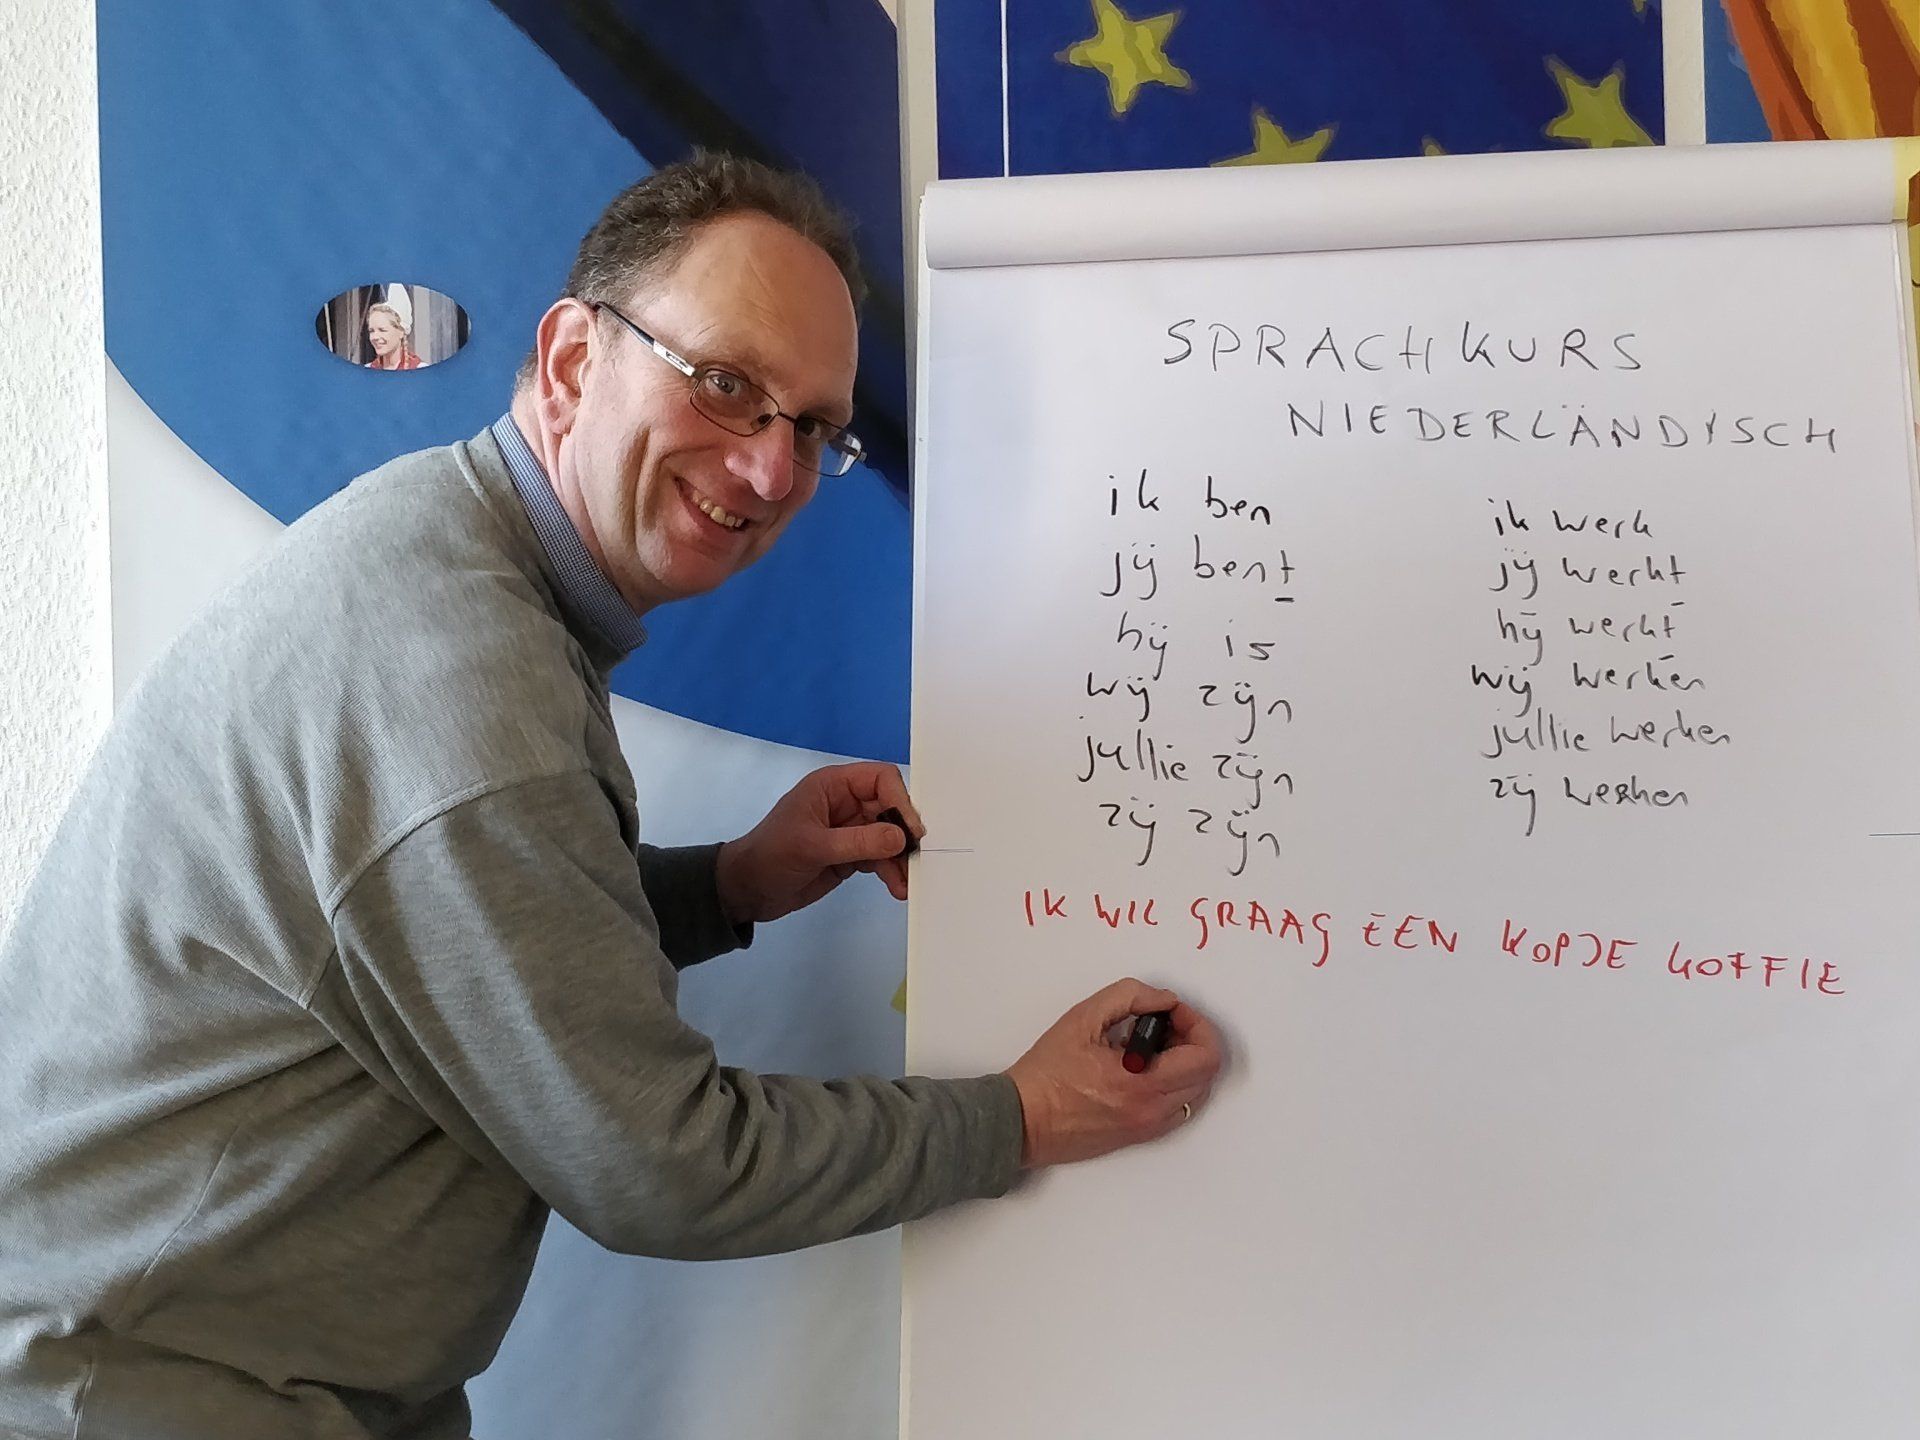 SPRACHKURS
NIEDERLÄNDISCH
ik ben
jij bent
hij is
wij zijn
jullie zijn
zij zijn
ik werk
jij werkt
hij werkt
wij werken
jullie werken
zij werken
IK WIL GRAAG EEN KOPJE KOFFIE